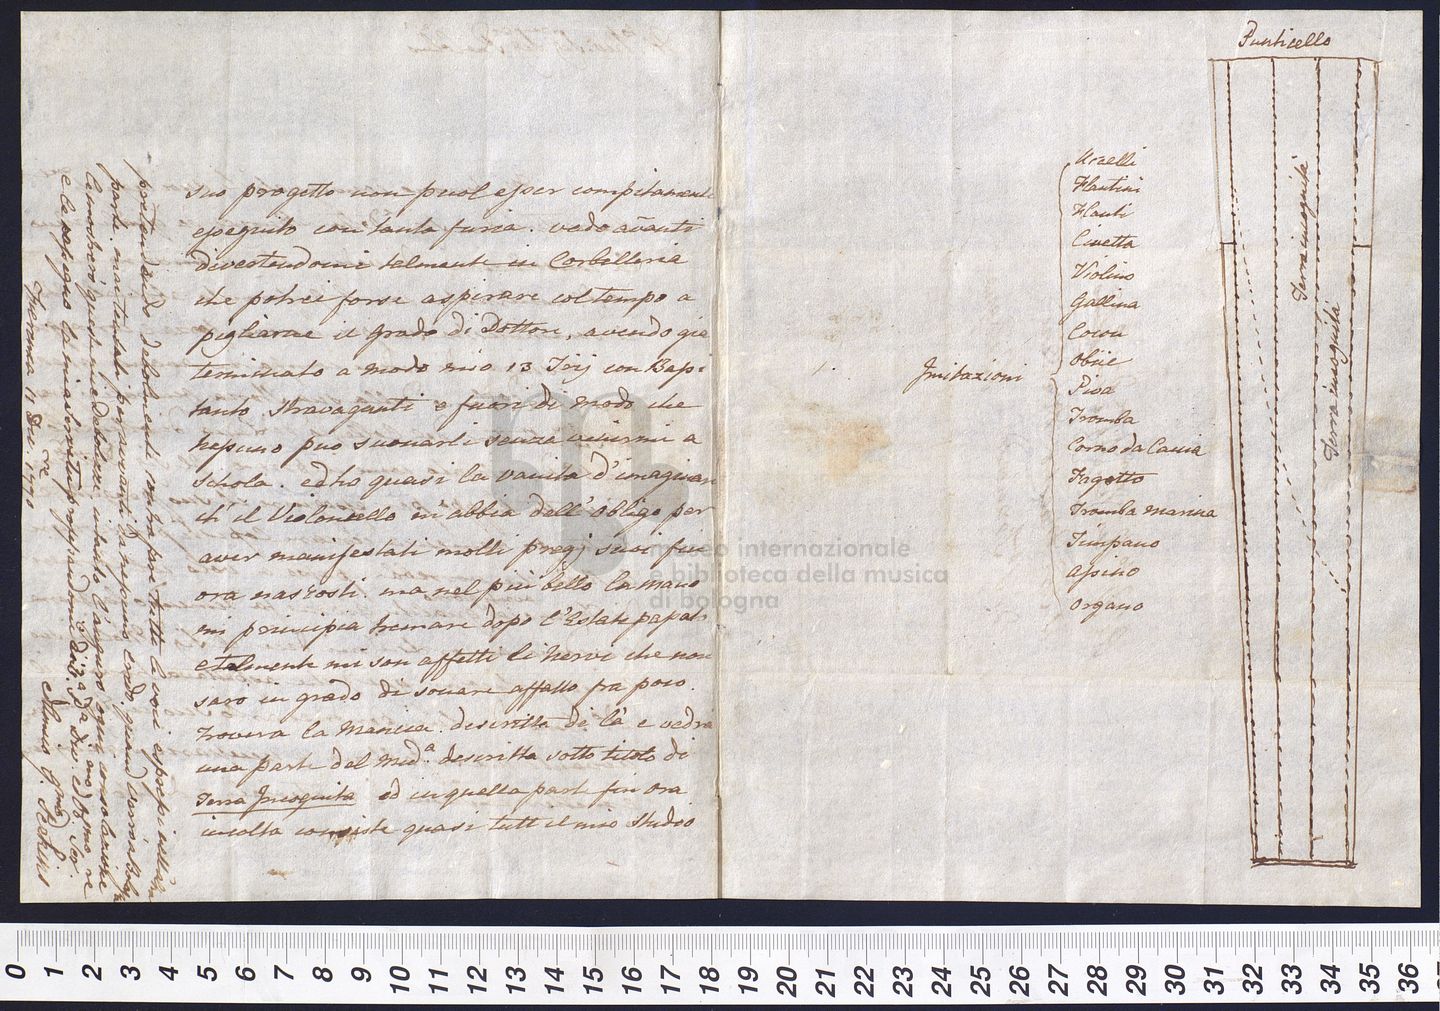 suo progetto non puol esser compitamente
eseguito con tanta furia. vado avanti
divertendomi talmente in Corbelleria
che potrei forse aspirare col tempo a
pigliarne il grado di Dottore, avendo gia
terminato a modo mio 13 Trij con Bas-
tanto stravaganti e fuori di modo che
nessuno puo suonarli senza venirmi a
schola. ed ho quasi la vanita d'imaginar
ch' il Violoncello m'abbia dell' obligo per
aver manifestati molti pregj suoi fin
ora nascosti. ma nel piu bello la mano
mi principia tremare dopo l'Estate passata
e talmente mi son affetti li Nervi che non
saro in grado di sonare affatto fra poco.
trovera la Manica descritta di là e vedra
una parte del med.a descritta sotto titolo di
Terra Incognita ed in quella parte fin ora
incolta consiste quasi tutt il mio Studio
pretendendo contra pare tutte le voci
parte mai tentati per avanti da nessuno credo. quand
le mostrerò intanto l'auguro ogni consolazione
Ravenna 11 Dic.re 1790
Imitazioni
Ucelli
Flautini
Flauti
Civetta
Violino
Gallina
Cocou
Oboe
Piva
Tromba
Corno da Caccia
Fagotto
Tromba marina
Timpano
Asino
Organo
Ponticello
Terra incognita
Terra incognita
museo internazionale
e biblioteca della musica
di bologna
0 1 2 3 4 5 6 7 8 9 10 11 12 13 14 15 16 17 18 19 20 21 22 23 24 25 26 27 28 29 30 31 32 33 34 35 36